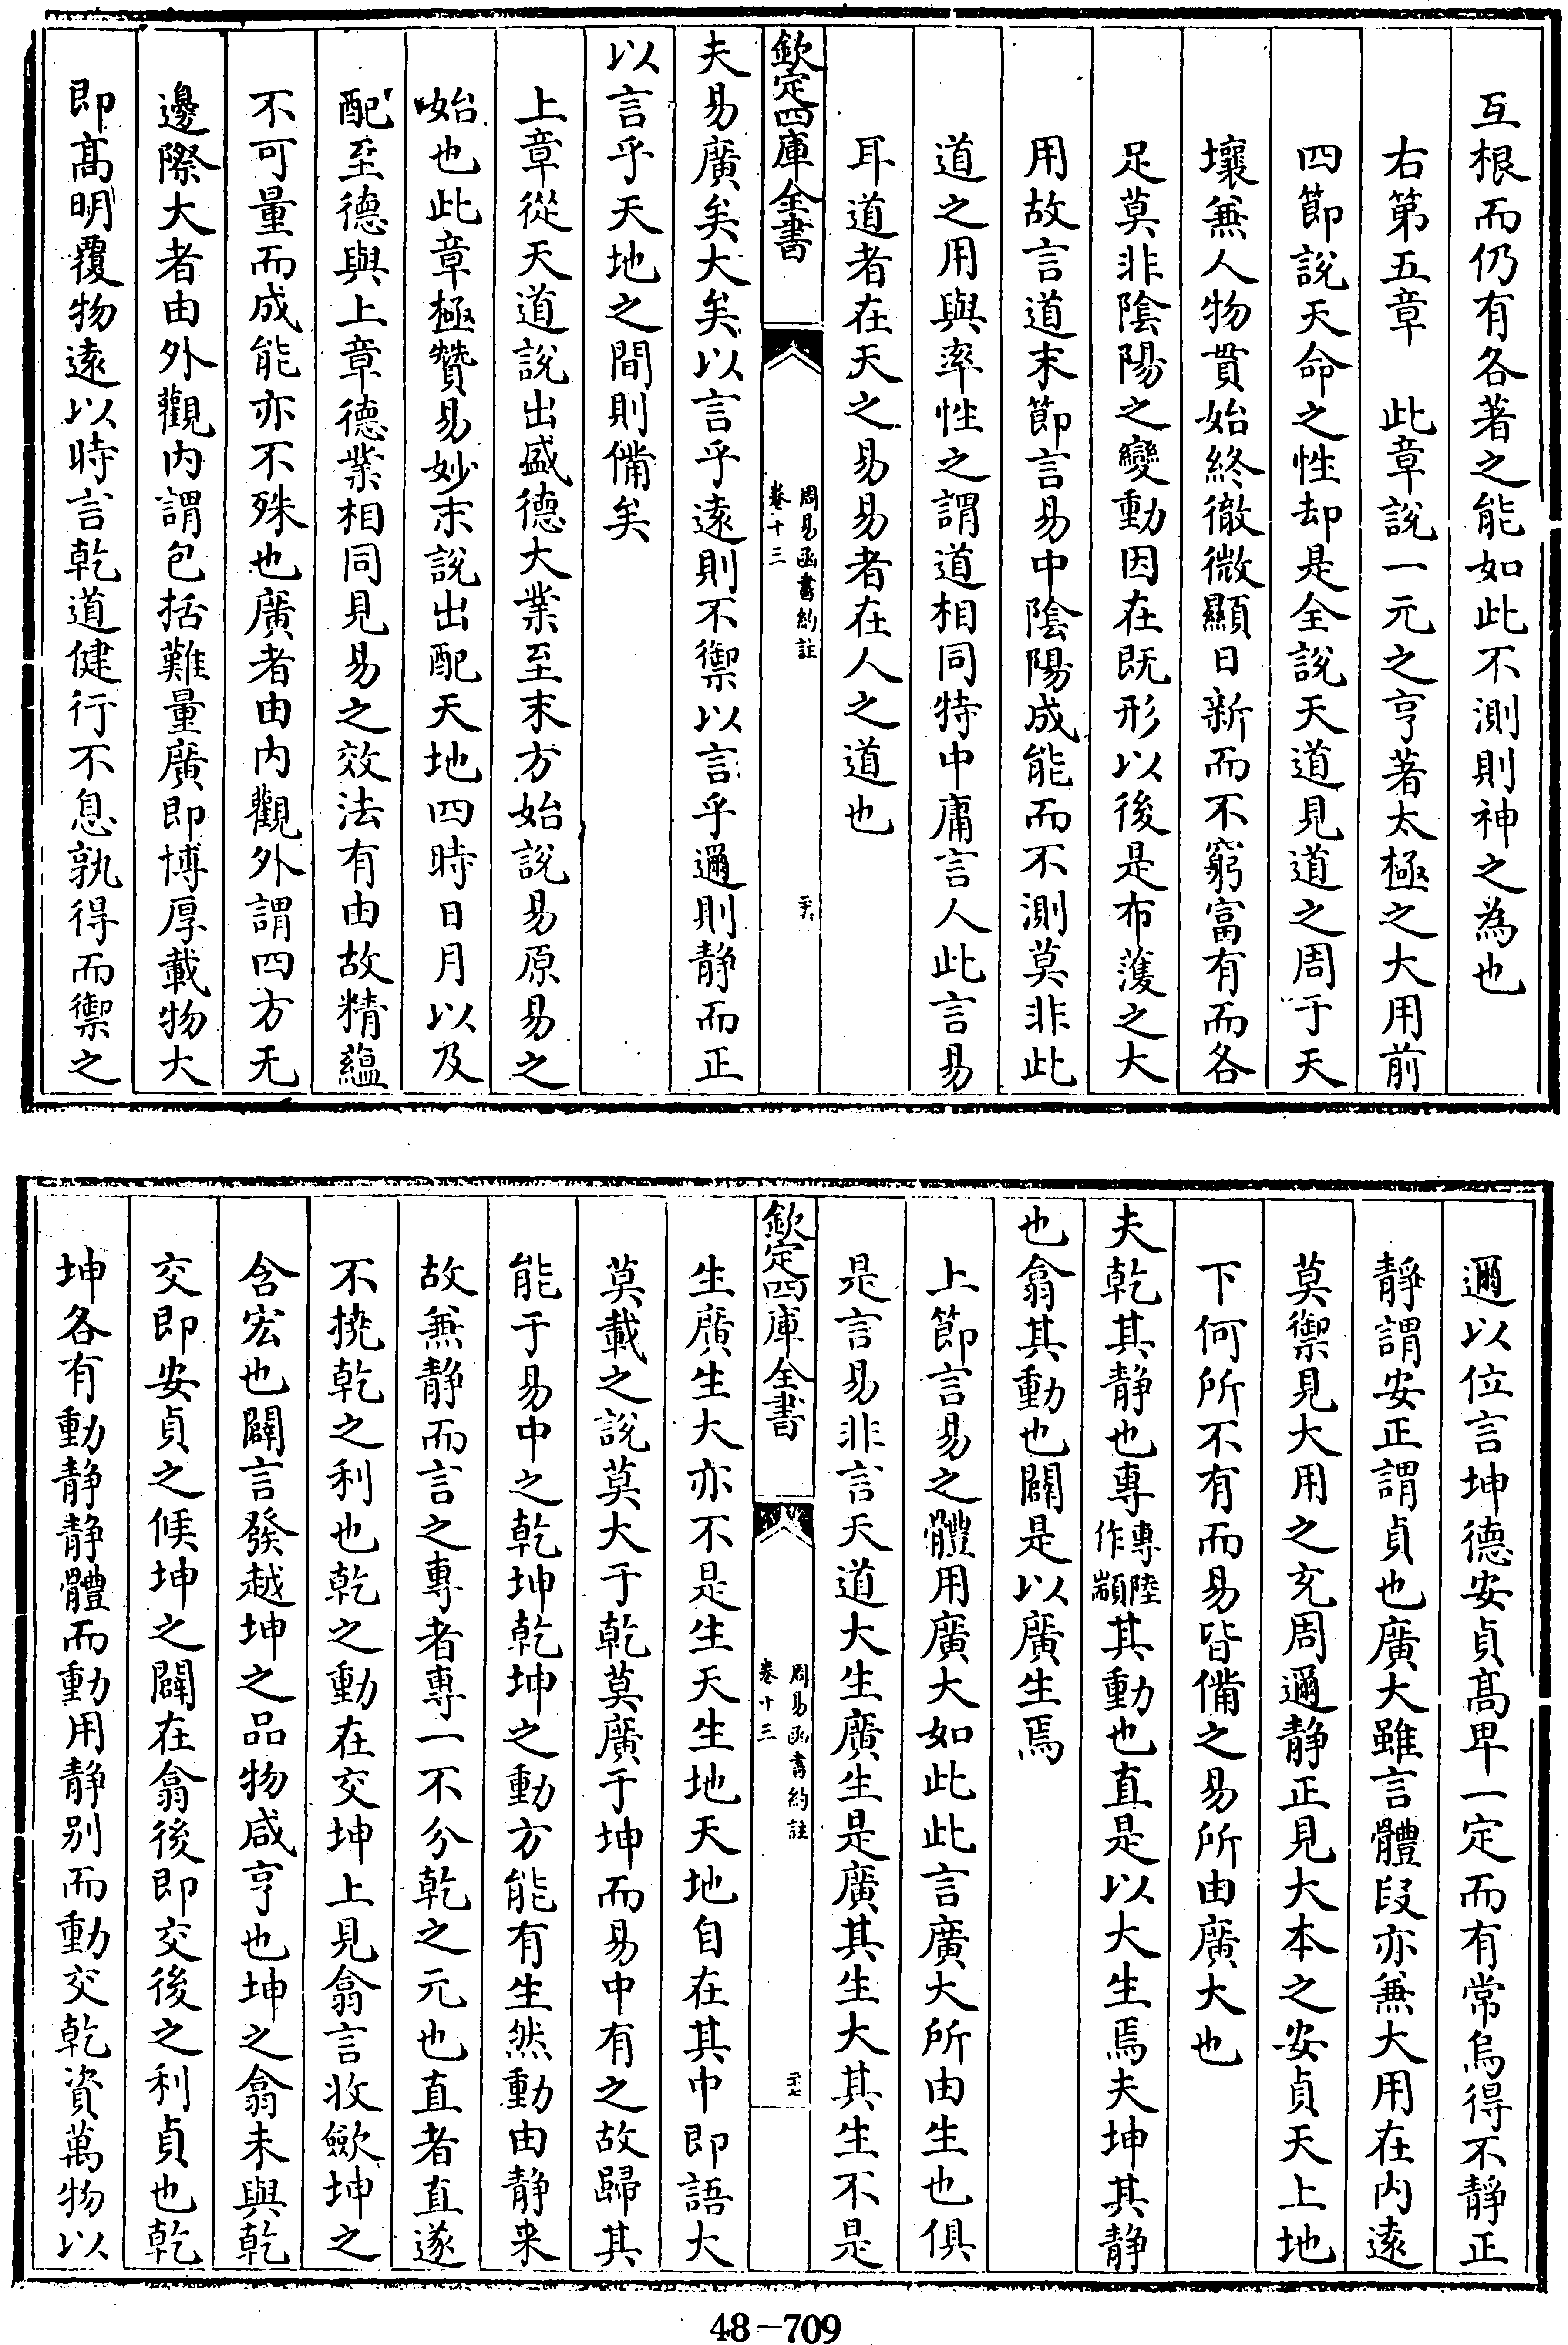 互根而仍有各著之能如此不測則神之為也
右第五章　此章説一元之亨著太極之大用前
四節説天命之性却是全説天道見道之周于天
壤無人物貫始終徹微顯日新而不窮富有而各
足莫非陰陽之變動因在既形以後是布濩之大
用故言道末節言易中陰陽成能而不測莫非此
道之用與率性之謂道相同特中庸言人此言易
耳道者在天之易易者在人之道也
欽定四庫全書
周易函書約註
卷十三
三十六
夫易廣矣大矣以言乎遠則不禦以言乎邇則静而正
以言乎天地之間則備矣
上章從天道説出盛德大業至末方始説易原易之
始也此章極贊易妙末説出配天地四時日月以及
配至德與上章德業相同見易之效法有由故精藴
不可量而成能亦不殊也廣者由内觀外謂四方无
邊際大者由外觀内謂包括難量廣即博厚載物大
即髙明覆物遠以時言乾道健行不息孰得而禦之
邇以位言坤德安貞髙卑一定而有常烏得不靜正
靜謂安正謂貞也廣大雖言體段亦兼大用在内遠
莫禦見大用之充周邇静正見大本之安貞天上地
下何所不有而易皆備之易所由廣大也
夫乾其静也專專陸作顓其動也直是以大生焉夫坤其静
也翕其動也闢是以廣生焉
上節言易之體用廣大如此此言廣大所由生也俱
是言易非言天道大生廣生是廣其生大其生不是
欽定四庫全書
周易函書約註
卷十三
三十七
生廣生大亦不是生天生地天地自在其中即語大
莫載之說莫大于乾莫廣于坤而易中有之故歸其
能于易中之乾坤乾坤之動方能有生然動由静来
故兼静而言之專者專一不分乾之元也直者直遂
不撓乾之利也乾之動在交坤上見翕言收斂坤之
含宏也闢言發越坤之品物咸亨也坤之翕未與乾
交即安貞之候坤之闢在翕後即交後之利貞也乾
坤各有動静静體而動用静别而動交乾資萬物以
48-709